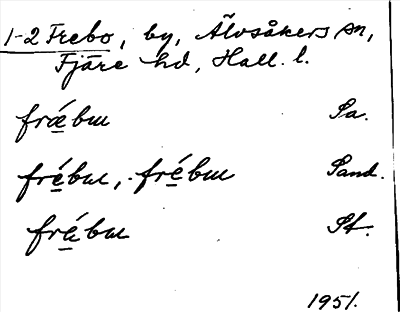 1-2 Frebo, by, Älvsåkers sn,
Fjäre hd, Hall. l.
frǽ̱bɯ Sa.
fré̱bɯ, -fré̱bɯ Sand.
fré̱bɯ St.
1951.